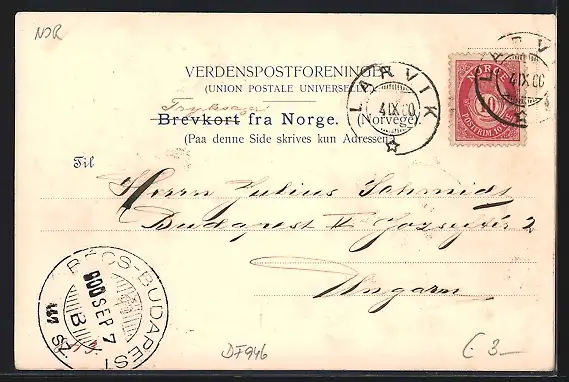 NOR
VERDENSPOSTFORENINGEN
(UNION POSTALE UNIVERSELLE)
Brevkort fra Norge. (Norvège)
(Paa denne Side skrives kun Adressen)
LARVIK
4 IX 00
LARVIK
4 IX 00
NORGE
10
POSTFRIM. 10
Til
Herrn Julius Schmidt
Budapest
2
Ungarn
BÉCS-BUDAPEST
900 SEP 7
B
DF946
€ 3-